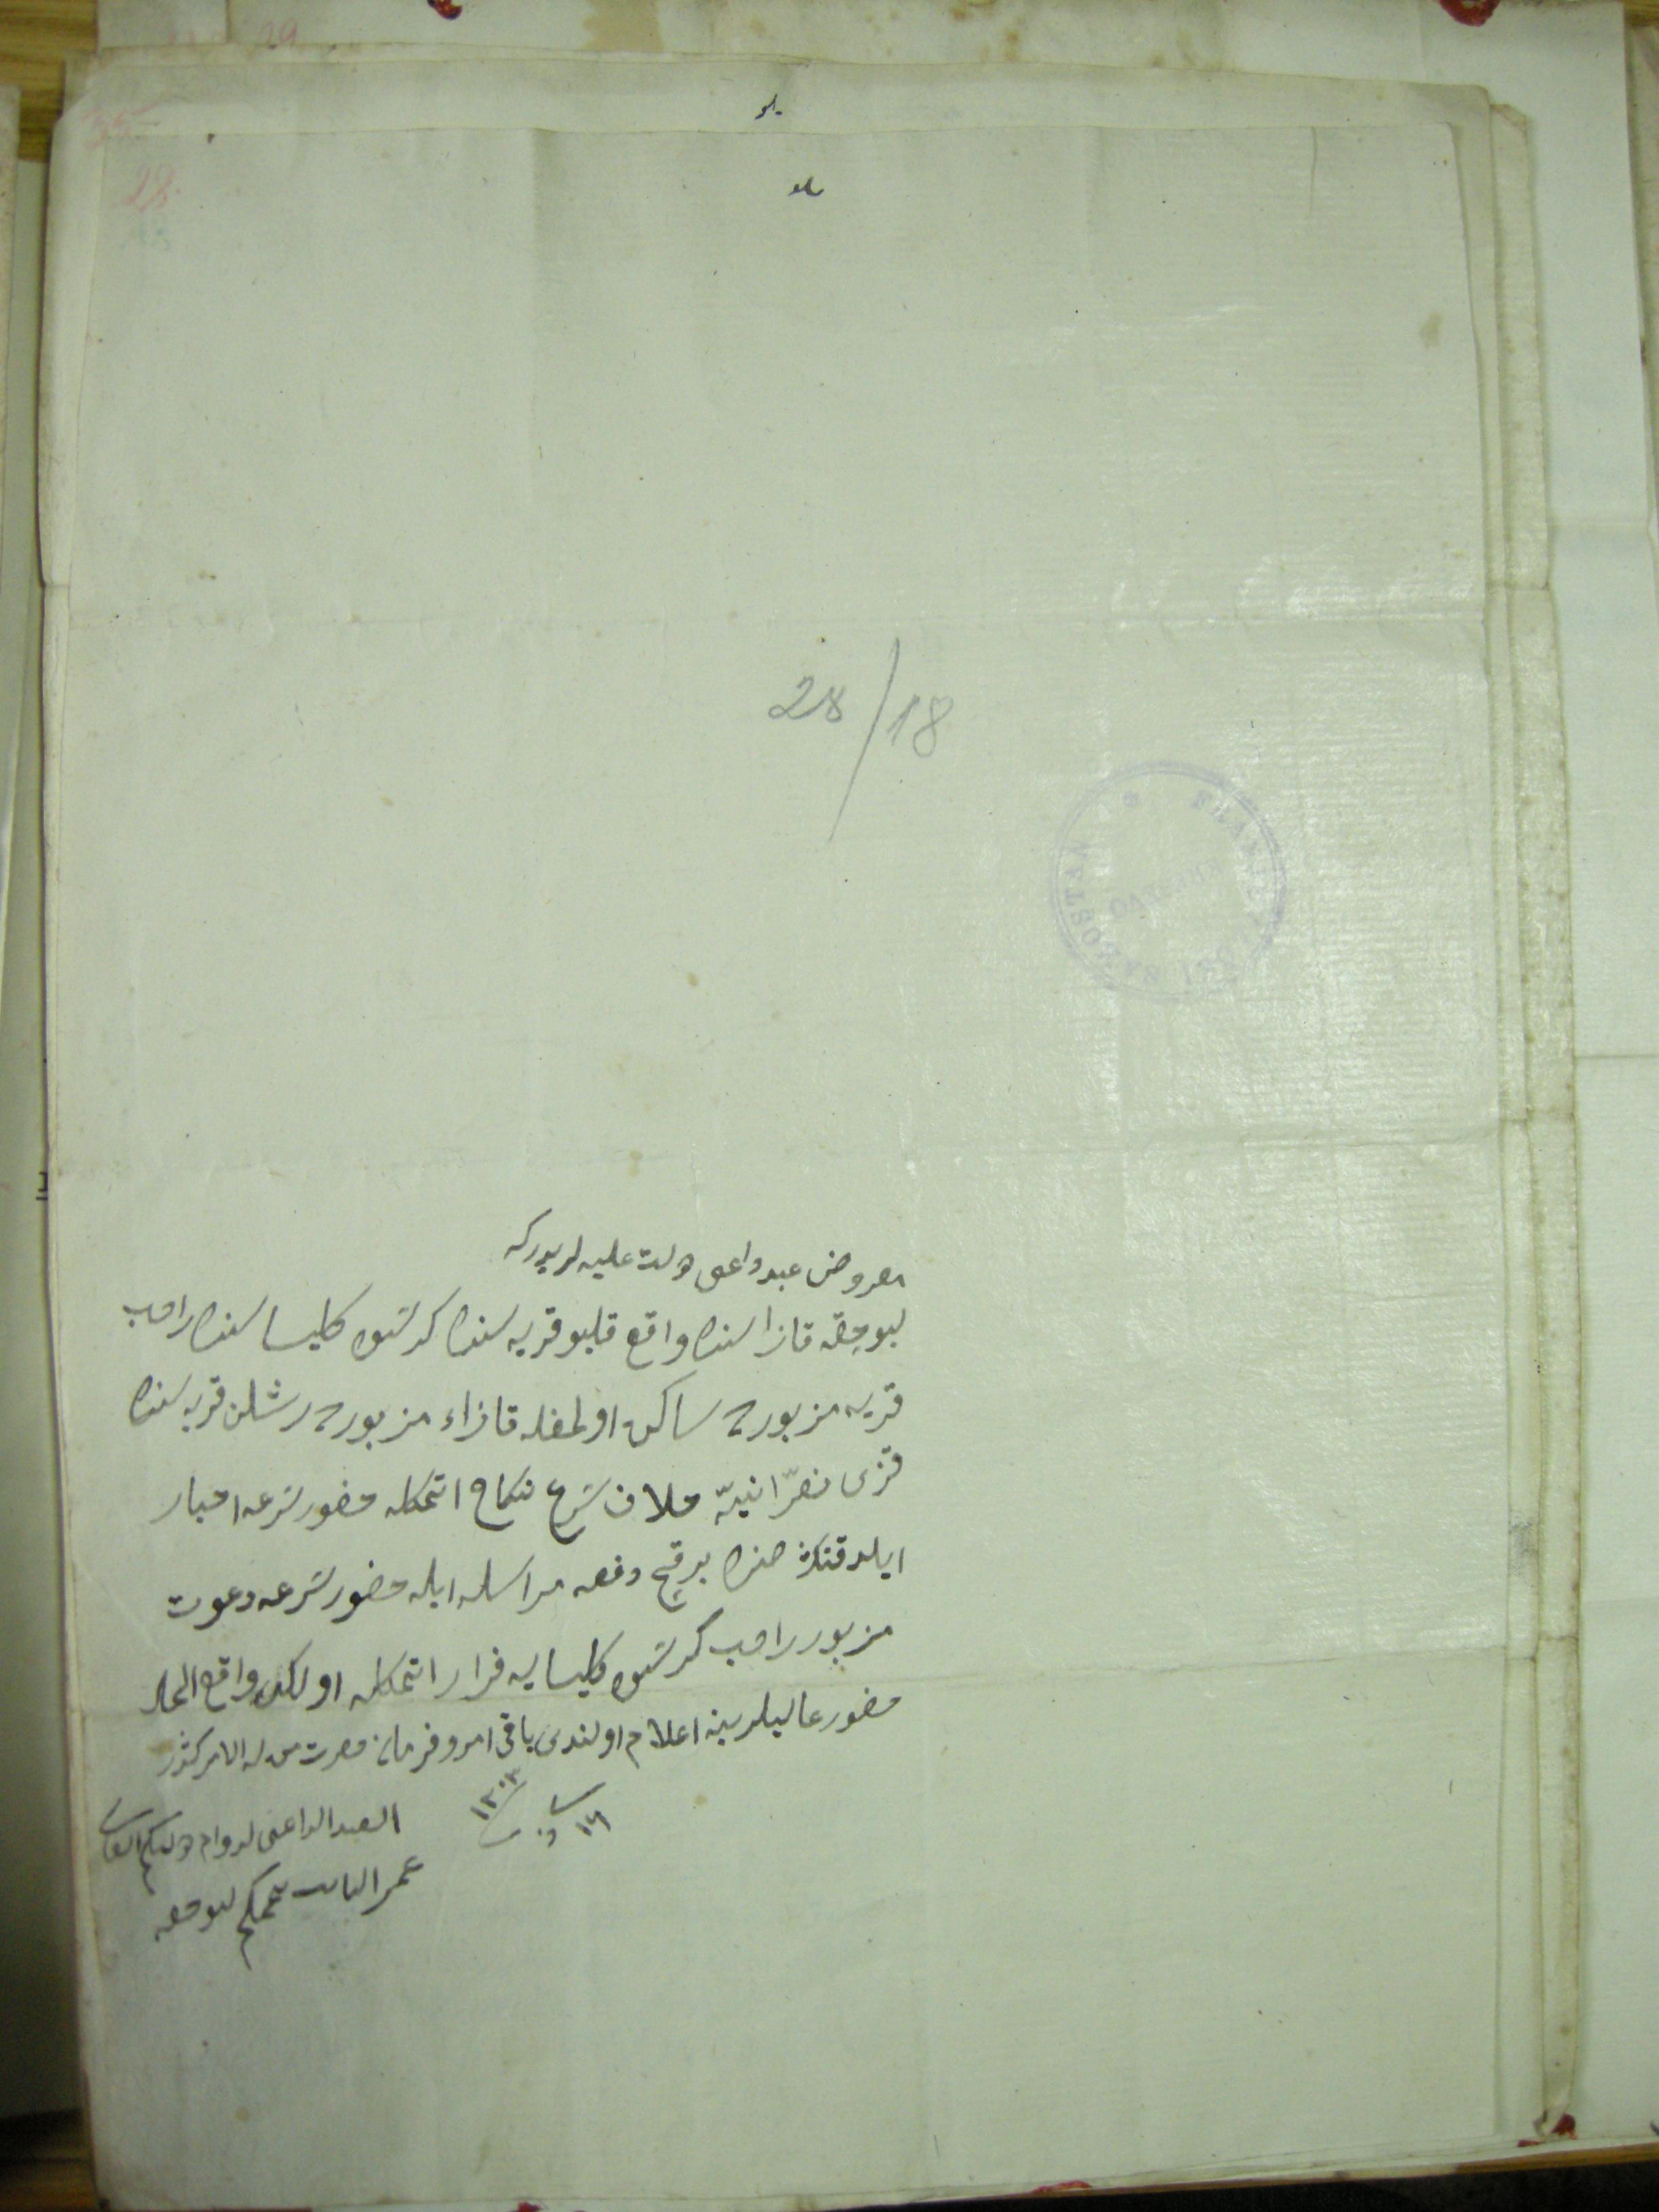 28
28/18
FRANJEVAČKI SAMOSTAN
KREŠEVO
معروض عبد داعی دولت علیه لریدرکه
لبوجقه قازاسنده واقع قلبو قریه سنده کرشوه کلیساسنده راهب
قریه مزبورده ساکن اولمغله قازاء مزبورده رشلن قریه سنده
قزی نصرانیه خلاف شرع نکاح اتمکله حضور شرعه احبار
ایلدقندن صنره برقچ دفعه مراسله ایله حضور شرعه دعوت
مزبور راهب کرشوه کلیسایه فرار اتمکله اولکده واقع الحال
حضور عالیلرینه اعلام اولندی باقی امر و فرمان حضرت من له الامرکندر
١٢٠٣
العبد الداعی لدوام دولتکم العالی
عمر النائب بمحکمه لبوجقه